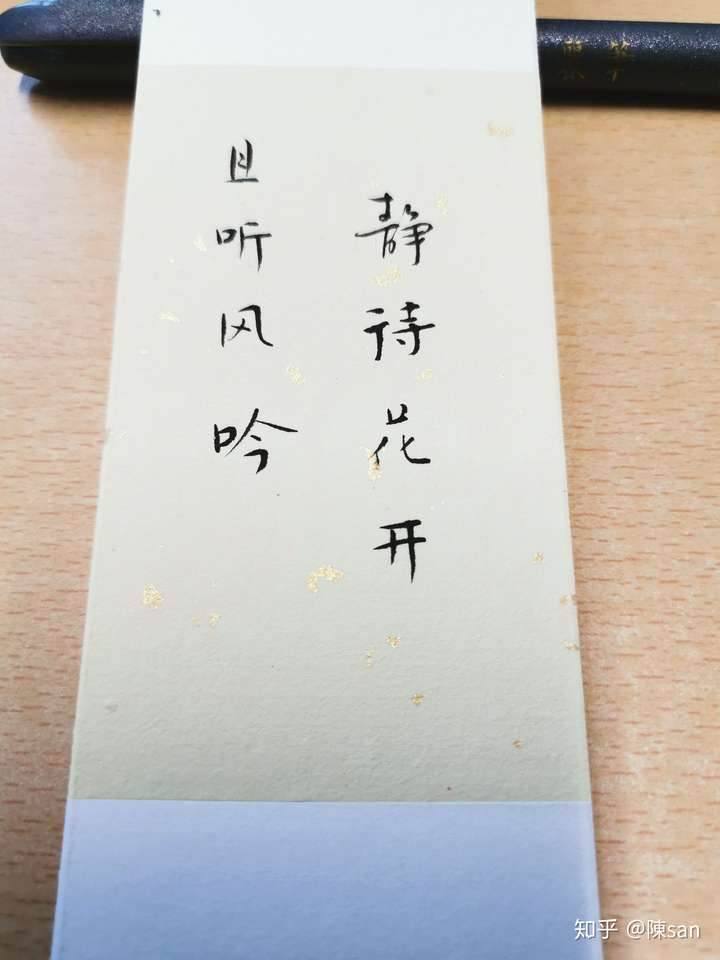 且听风吟
静待花开
知乎 @陳san